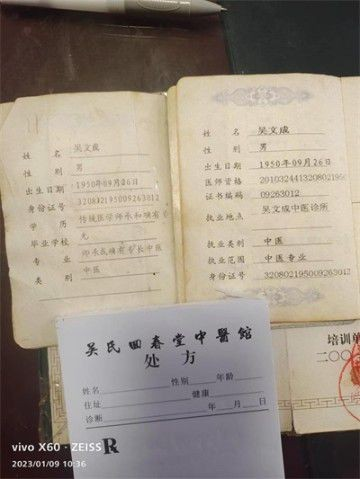 姓 名 吴文成
性 别 男
出生日期 1950年09月26日
身份证号 320821950092630
12
学 历 传统医学师承和确有
毕业学校 无
专 业 师承或确有专长中医
类 别 中医
姓 名 吴文成
性 别 男
出生日期 1950年09月26日
医师资格 201032441320821950
证书编码 09263012
执业地点 吴文成中医诊所
执业类别 中医
执业范围 中医专业
身份证号 320802195009263012
培训单
二〇〇
吴氏回春堂中醫館
处 方
姓名 性别 年龄
住址 健康
诊断 年 月 日
R
vivo X60 · ZEISS
2023/01/09 10:36